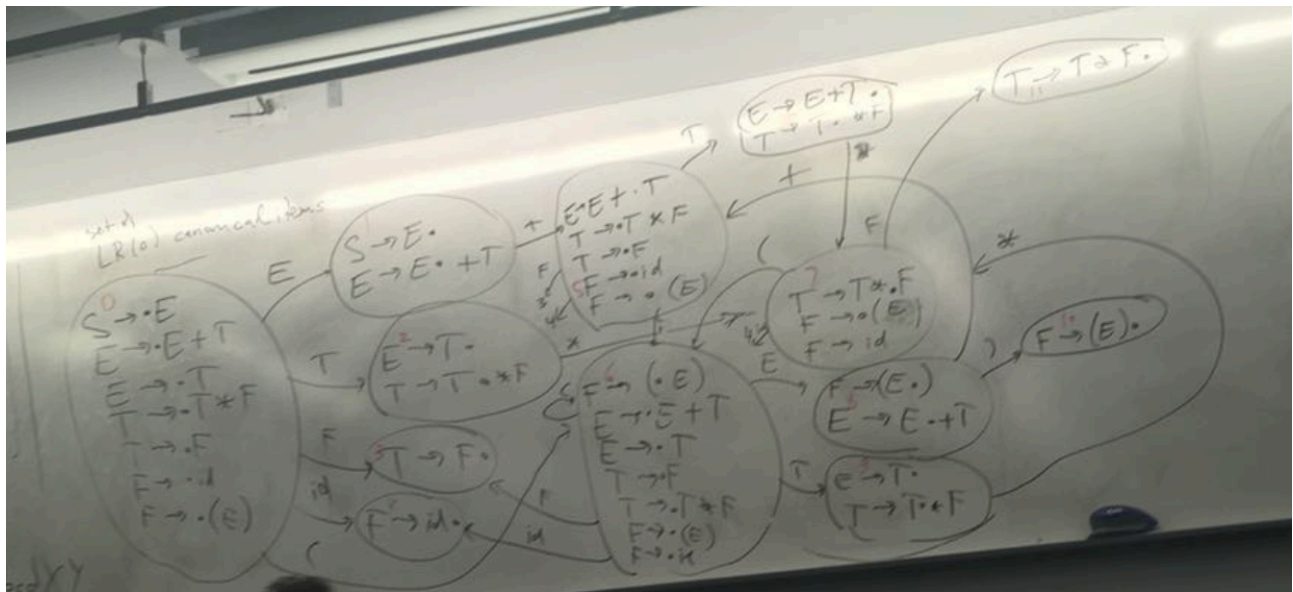 set of
LR(0) canonical items
0
S → •E
E → •E + T
E → •T
T → •T * F
T → •F
F → •id
F → •(E)
E
T
F
id
(
1
S → E•
E → E• + T
+
2
E → T•
T → T•*F
*
3
T → F•
F → id•
E → E + •T
T → •T * F
T → •F
5
F → •id
F → •(E)
F
3
4
T
E → E + T•
T → T• * F
*
T → T * F•
11
F
+
(
7
T → T * •F
F → •(E)
F → id
6
F → (•E)
E → •E + T
E → •T
T → •F
T → •T * F
F → •(E)
F → •id
(
F
id
E
T
F → (E•)
E → E• + T
)
10
F → (E)•
E → T•
T → T•*F
*